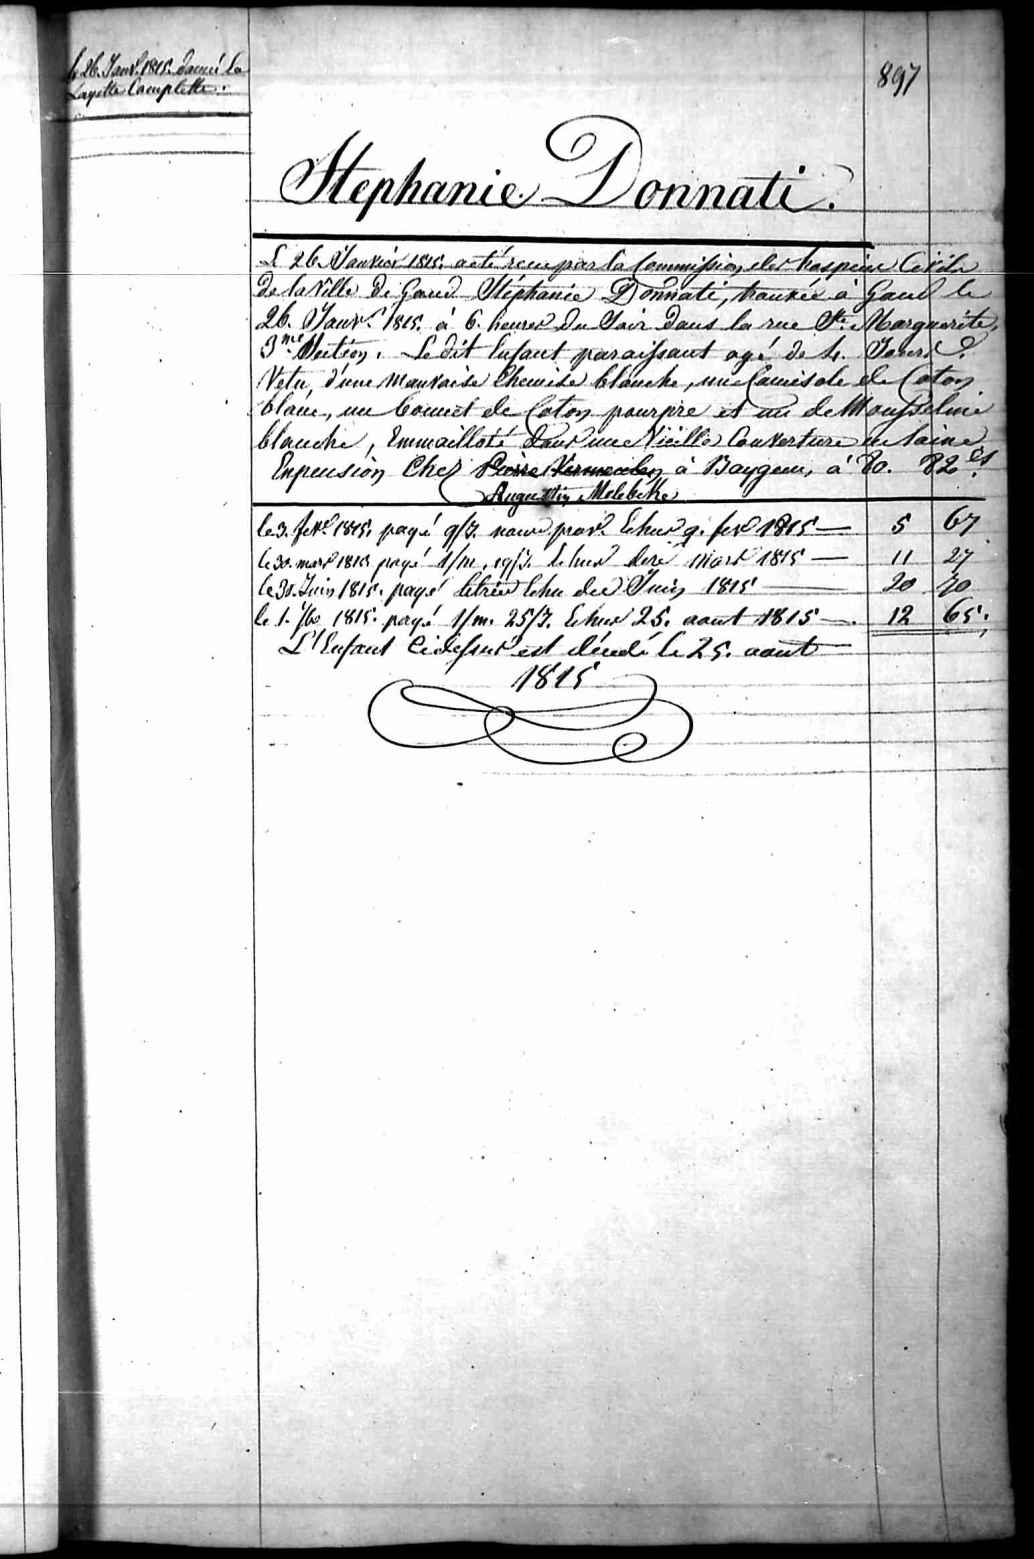 le 26. Janv.r 1815. donné la
Layette Complette.
897
Stephanie Donnati.
Le 26. Janvier 1815. a été recue par la Commission des hospices Civils
de la Ville de Gand Stéphanie Donnati, trouvée à Gand le
26. Janv.r 1815. à 6. heures du Soir dans la rue Ste. Marguerite,
3.me Section. Le dit Enfant paraissant agé de 4. Jours.
Vetu, d'une mauvaise Chemise blanche, une Camisole de Coton
blanc, un bonnet de Coton pourpre et un de Mousseline
blanche, Emmailloté dans une Vieille Couverture de laine
Enpension Chez Pierre Vermeulen à Baygem, à 80. 82 cs.
Augustin Melebeke
le 3. fevr. 1815. payé 9/J. nour. prov. Echus 9. fevr 1815 — 5 67
le 30. mars 1815 payé 1/m. 19/J. Echus mars 1815 — 11 27
le 30. Juin 1815. payé letrim Echu de Juin 1815 — 20 70
le 1. 1815. payé 1/m. 25/J. Echus 25. aout 1815 — 12 65.
L'Enfant Cidessus est décédé le 25. aout
1815